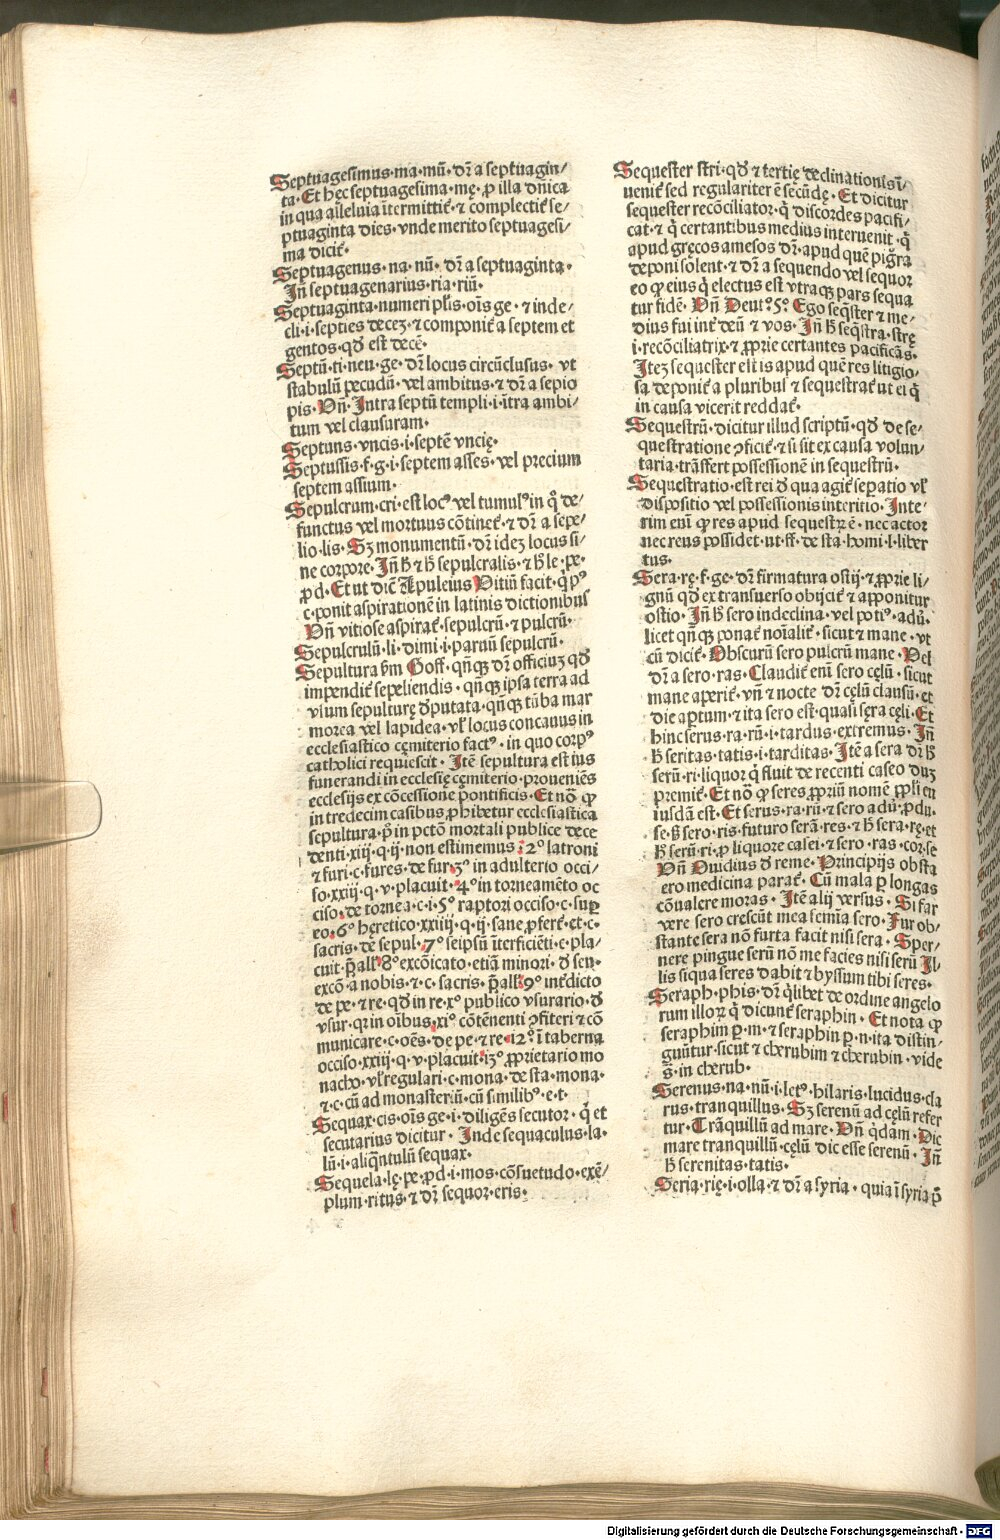 Septuagesimus·ma·mū·dr̄ a septuagin/
ta·Et hęc septuagesima·mę·ꝓ illa dn̄ica
in qua alleluia ītermittit᷑·⁊ complectit᷑ se/
ptuaginta dies·vnde merito septuagesi/
ma dicit᷑·
Septuagenus·na·nū·dr̄ a septuaginta·
Jn̄ septuagenarius·ria·riū·
Septuaginta·numeri pl̄is·oīs ge·⁊ inde/
cli·i·septies decez·⁊ componit᷑ a septem et
gentos·qd̛ est decē·
Septū·ti·neu·ge·dr̄ locus circūclusus·vt
stabulū pecudū·vel ambitus·⁊ dr̄ a sepio
pis·Vn̄·Jntra septū templi·i·ītra ambi/
tum vel clausuram·
Septuns·vncis·i·septē vncię·
Septussis·f·g·i·septem asses·vel precium
septem assium·
Sepulcrum·cri·est locꝰ vel tumulꝰ in q̊ de/
functus vel mortuus cōtinet᷑·⁊ dr̄ a sepe/
lio·lis·Sz monumentū·dr̄ idez locus si/
ne corpore·Jn̄ h̛ ⁊ h̛ sepulcralis·⁊ h̛ le·pe·
ꝓ d·Et ut dic̄ Apuleius Vitiū facit·q̛ pꝰ
c·ponit aspirationē in latinis dictionibus
Vn̄ vitiose aspirat᷑ sepulcrū·⁊ pulcrū·
Sepulcrulū·li·dimi·i·paruū sepulcrū·
Sepultura ẜm Goff·qn̄qꝫ dr̄ officiuz qd̛
impendit᷑ sepeliendis·qn̄qꝫ ipsa terra ad
vsum sepulturę d̛putata·qn̄qꝫ tūba mar
morea vel lapidea·vl̛ locus concauus in
ecclesiastico cęmiterio factꝰ·in quo corpꝰ
catholici requiescit·Jtē sepultura est ius
funerandi in ecclesię cęmiterio·proueniēs
ecclesijs ex cōcessione pontificis·Et nō ꝙ
in tredecim casibus ꝓhibetur ecclesiastica
sepultura·p̊ in pctō mortali publice dece
denti·xiij·q·ij·non estimemus·2º latroni
⁊ furi·c·fures·de fur·3º in adulterio occi/
so·xxiij·q·v·placuit·4º in torneamēto oc
ciso·de tornea·c·i·5º raptori occiso·c·suꝑ
eo·6º hęretico·xxiiij·q·ij·sane ꝓfert᷑·et·c·
sacris·de sepul·7º seipsū īterficiēti·c·pla/
cuit·p̄all̛·8º excōicato·etiā minori·d̛ sen·
excō·a nobis·⁊·c·sacris·p̄all̛·9º int̛dicto
de pe·⁊ re·qd̛ in re·xº publico vsurario·d̛
vsur·qr in oībus·xiº cōtēnenti ꝯfiteri ⁊ cō
municare·c·oēs·de pe·⁊ re·12º·ī taberna
occiso·xxiij·q·v·placuit·13º ꝓprietario mo
nacho·vl̛ regulari·c·mona·de sta·mona·
⁊·c·cū ad monasteriū·cū similibꝰ·e·t·
Sequax·cis·oīs ge·i·diligēs secutor·q̛ et
secutarius dicitur·Jnde sequaculus·la·
lū·i·aliq̄ntulū sequax·
Sequela·lę·pe·ꝓ d·i·mos·cōsuetudo·exē/
plum·ritus·⁊ dr̄ sequor·eris·
Sequester stri·qd̛ ⁊ tertię declinationis ī/
uenit᷑ sed regulariter ē secūdę·Et dicitur
sequester recōciliator·q̛ discordes pacifi/
cat·⁊ q̛ certantibus medius interuenit·q̛
apud gręcos amesos dr̄·apud quē pig̛ra
deponi solent·⁊ dr̄ a sequendo vel sequor
eo ꝙ eius q̛ electus est vtraqꝫ pars sequa
tur fidē·Vn̄ Deut̛º 5º Ego seq̄ster ⁊ me/
dius fui int̛ deū ⁊ vos·Jn̄ h̛ seq̄stra·strę
i·recōciliatrix·⁊ ꝓprie certantes pacificās·
Jtez sequester est is apud quē res litigio/
sa deponit᷑ a pluribuſ ⁊ sequestrat᷑ ut ei q̛
in causa vicerit reddat᷑·
Sequestrū·dicitur illud scriptū·qd̛ de se/
questratione ꝯficit᷑·⁊ si sit ex causa volun/
taria·trāsfert possessionē in sequestrū·
Sequestratio·est rei d̛ qua agit᷑ seꝑatio vl̛
dispositio vel possessionis interitio·Jnte/
rim enī ꝙ res apud sequestrꝫ ē·nec actor
nec reus possidet·ut·ff·de sta·homi·l·liber
tus·
Sera·rę·f·ge·dr̄ firmatura ostij·⁊ ꝓprie li/
gnū qd̛ ex transuerso obijcit᷑ ⁊ apponitur
ostio·Jn̄ h̛ sero indeclina·vel potiꝰ·adū·
licet qn̄qꝫ ponat᷑ noīalit᷑·sicut ⁊ mane·vt
cū dicit᷑·Obscurū sero pulcrū mane·Vel
dr̄ a sero·ras·Claudit᷑ enī sero cęlū·sicut
mane aperit᷑·vn̄ ⁊ nocte dr̄ cęlū clausū·et
die aꝑtum·⁊ ita sero est·quasi sęra cęli·Et
hinc serus·ra·rū·i·tardus·extremus·Jn̄
h̛ seritas·tatis·i·tarditas·Jtē a sera dr̄ h̛
serū·ri·liquor q̛ fluit de recenti caseo duꝫ
premit᷑·Et nō ꝙ seres ꝓpriū nomē ꝓpli eu
iusdā est·Et serus·ra·rū·⁊ sero adū·ꝓdu·
se·ß sero·ris·futuro serā·res·⁊ h̛ sera·rę·et
h̛ serū·ri·ꝓ liquore casei·⁊ sero·ras·cor·se
Vn̄ Ouidius d̛ reme·Principijs obsta
ero medicina parat᷑·Cū mala ꝑ longas
cōualere moras·Jtē alij versus·Si far
vere sero crescūt mea semīa sero·Fur ob/
stante sera nō furta facit nisi sera·Sper/
nere pingue serū nō me facies nisi serū Jl/
lis siqua seres dabit ⁊ byssum tibi seres·
Seraph·phis·dr̄ q̛libet de ordine angelo
rum illoꝝ q̛ dicunt᷑ seraphin·Et nota ꝙ
seraphim ꝑ·m·⁊ seraphin ꝑ·n·ita distin/
guūtur·sicut ⁊ cherubim ⁊ cherubin·vide
s̛·in cherub·
Serenus·na·nū·i·letꝰ·hilaris·lucidus·cla
rus·tranquillus·Sz serenū ad cęlū refer
tur·Trāquillū ad mare·Vn̄ q̛dam·Dic
mare tranquillū·cęlū dic esse serenū·Jn̄
h̛ serenitas·tatis·
Seria·rię·i·olla·⁊ dr̄ a syria·quia ī syria p̊
Digitalisierung gefördert durch die Deutsche Forschungsgemeinschaft - DFG